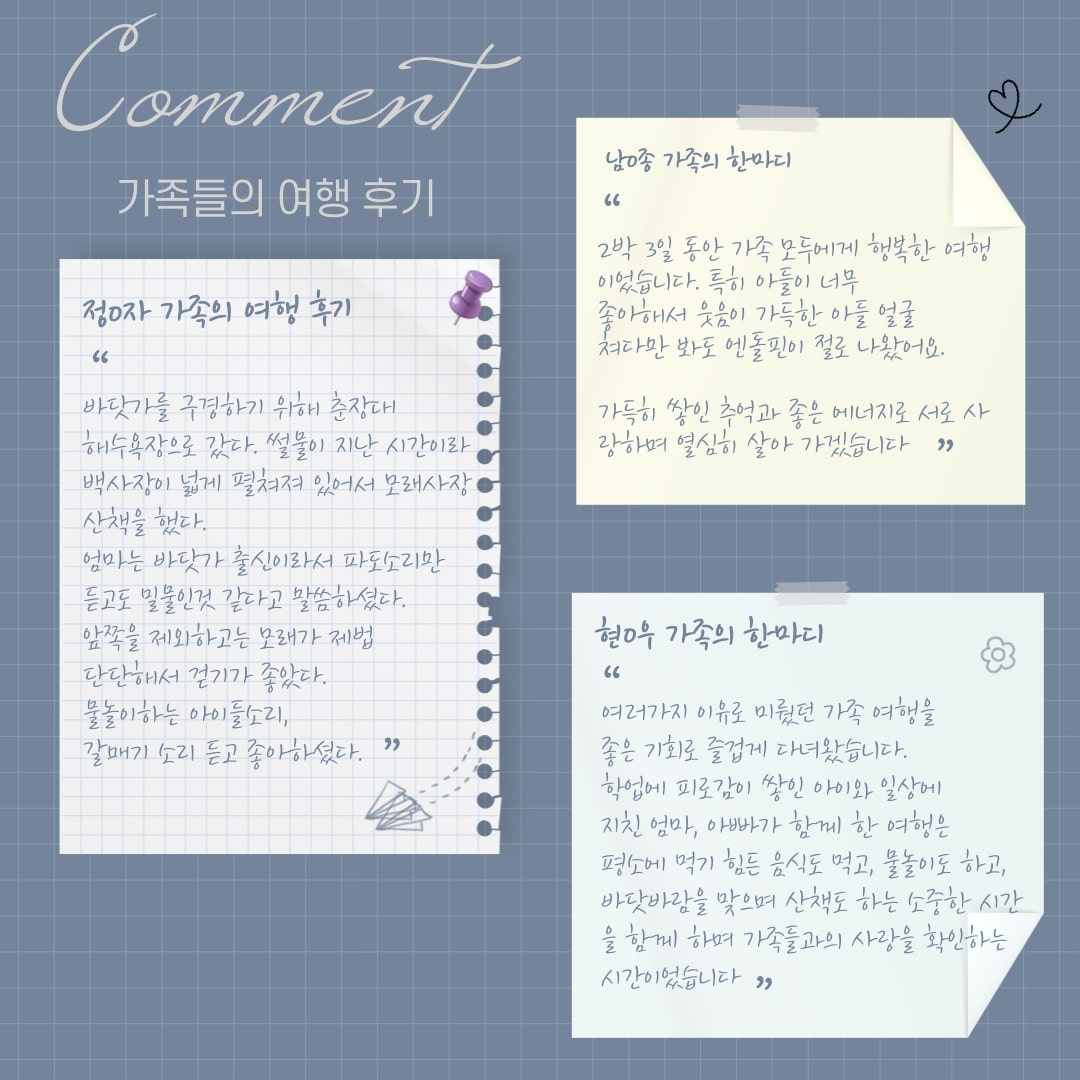 Comment
가족들의 여행 후기
정O자 가족의 여행 후기
“
바닷가를 구경하기 위해 춘장대
해수욕장으로 갔다. 썰물이 지난 시간이라
백사장이 넓게 펼쳐져 있어서 모래사장
산책을 했다.
엄마는 바닷가 출신이라서 파도소리만
듣고도 밀물인것 같다고 말씀하셨다.
앞쪽을 제외하고는 모래가 제법
단단해서 걷기가 좋았다.
물놀이하는 아이들소리,
갈매기 소리 듣고 좋아하셨다. ”
남O종 가족의 한마디
“
2박 3일 동안 가족 모두에게 행복한 여행
이었습니다. 특히 아들이 너무
좋아해서 웃음이 가득한 아들 얼굴
쳐다만 봐도 엔돌핀이 절로 나왔어요.
가득히 쌓인 추억과 좋은 에너지로 서로 사
랑하며 열심히 살아 가겠습니다 ”
현O우 가족의 한마디
“
여러가지 이유로 미뤘던 가족 여행을
좋은 기회로 즐겁게 다녀왔습니다.
학업에 피로감이 쌓인 아이와 일상에
지친 엄마, 아빠가 함께 한 여행은
평소에 먹기 힘든 음식도 먹고, 물놀이도 하고,
바닷바람을 맞으며 산책도 하는 소중한 시간
을 함께 하며 가족들과의 사랑을 확인하는
시간이었습니다 ”